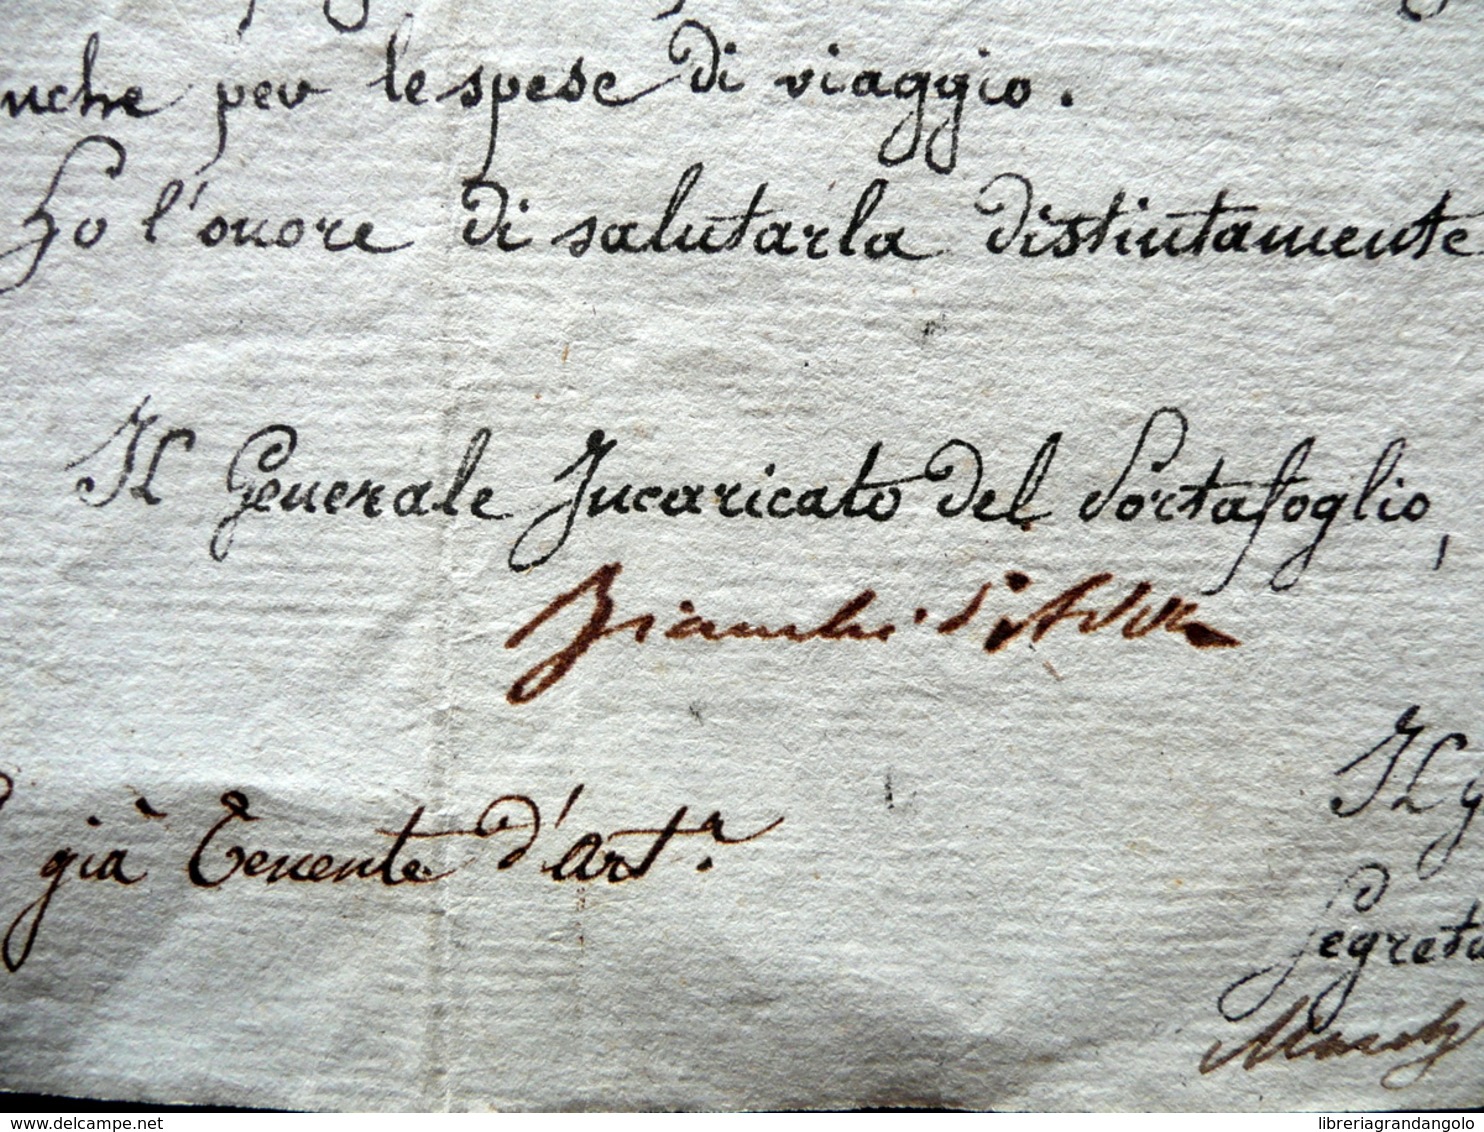 nche per le spese di viaggio.
Ho l'onore di salutarla distintamente
Il Generale Incaricato del Portafoglio,
Bianchi d'Adda
già Tenente d'art.ª
Il
Segreta
delcampe.net
libreriagrandangolo